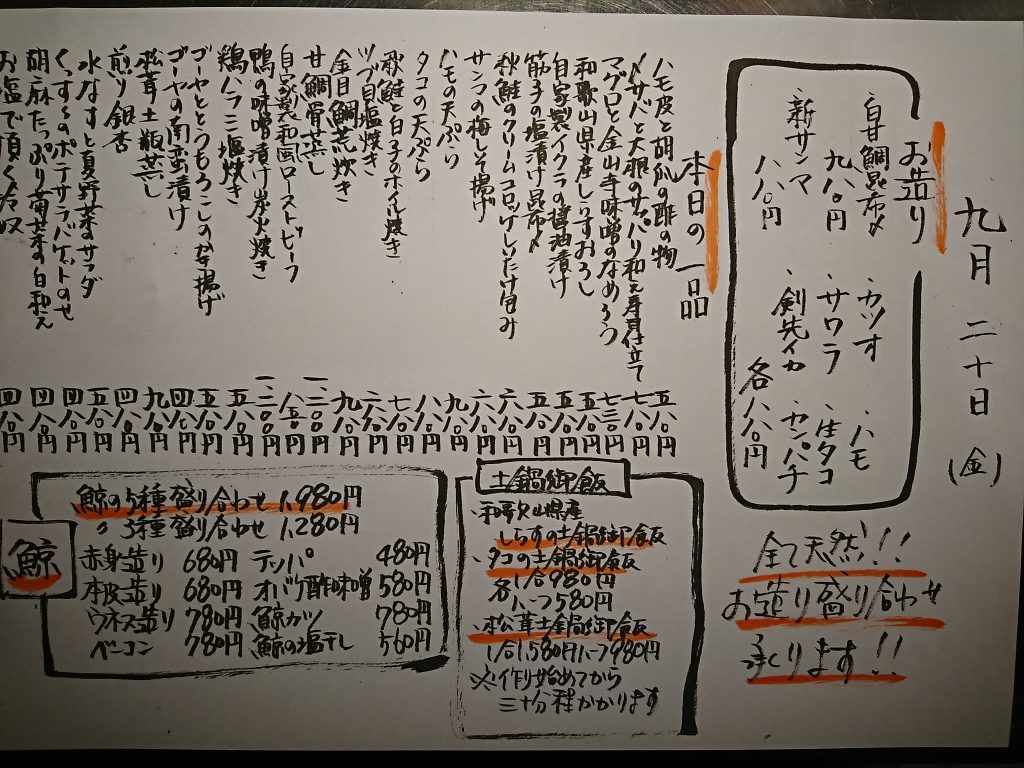 九月二十日(金)
お造り
・白甘鯛昆布〆 九八〇円
・新サンマ 八八〇円
・カツオ
・サワラ
・剣先イカ
・ハモ
・生タコ
・カンパチ
各八八〇円
全て天然!!
お造り盛り合わせ
承ります!!
本日の一品
ハモ皮と胡瓜の酢の物 五八〇円
〆サバと大根のサッパリ和え寿司仕立て 七八〇円
マグロと金山寺味噌のなめろう 七三〇円
和歌山県産しらすおろし 五八〇円
自家製イクラの醤油漬け
筋子の塩漬け昆布〆
秋鮭のクリームコロッケしいたけ包み
サンマの梅しそ揚げ
ハモの天ぷら
タコの天ぷら
秋鮭と白子のホイル焼き
ツブ貝塩焼き
金目鯛荒炊き
甘鯛骨蒸し
自家製和風ローストビーフ
鴨の味噌漬け炭火焼き
鶏ハラミ塩焼き
ゴーヤととうもろこしのかき揚げ
ゴーヤの南蛮漬け
松茸土瓶蒸し
煎り銀杏
水なすと夏野菜のサラダ
くんずるのポテサラバゲットのせ
胡麻たっぷり菊菜の白和え
お塩で頂く冷奴
土鍋御飯
・和歌山県産
しらすの土鍋御飯
・タコの土鍋御飯
各1合980円
各ハーフ580円
・松茸土鍋御飯
1合1,580円ハーフ980円
※作り始めてから
三十分程かかります
鯨
鯨の5種盛り合わせ 1,980円
〃 3種盛り合わせ 1,280円
赤身造り 680円 テッパ 480円
本皮造り 680円 オバケ酢味噌 580円
ウネス造り 780円 鯨カツ 780円
ベーコン 780円 鯨の塩干し 560円